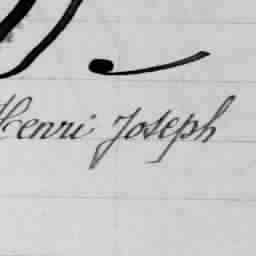 Henri Joseph